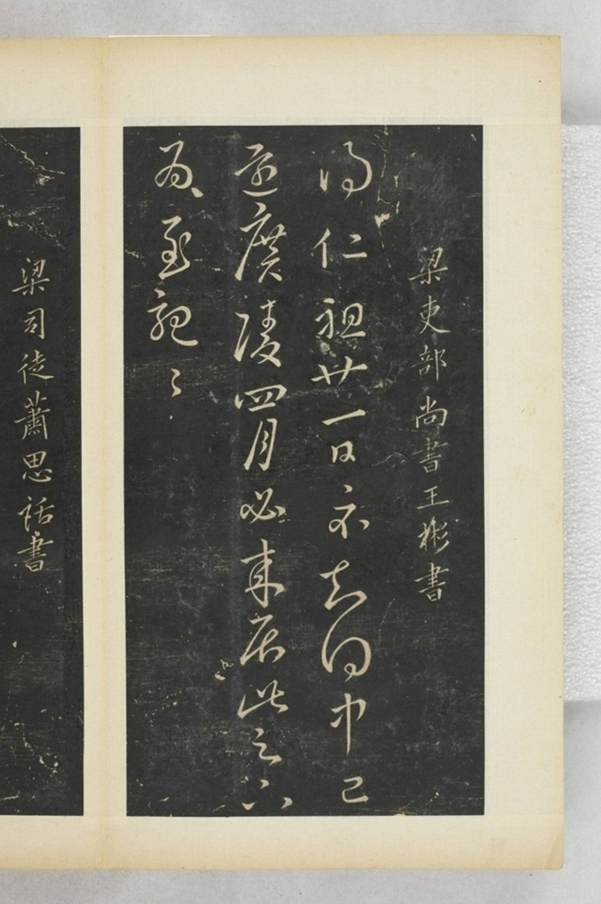 梁吏部尚書王彬書
得仁祖廿一日示知因中已
還廣陵四月必來居此之
為至
梁司徒蕭思話書